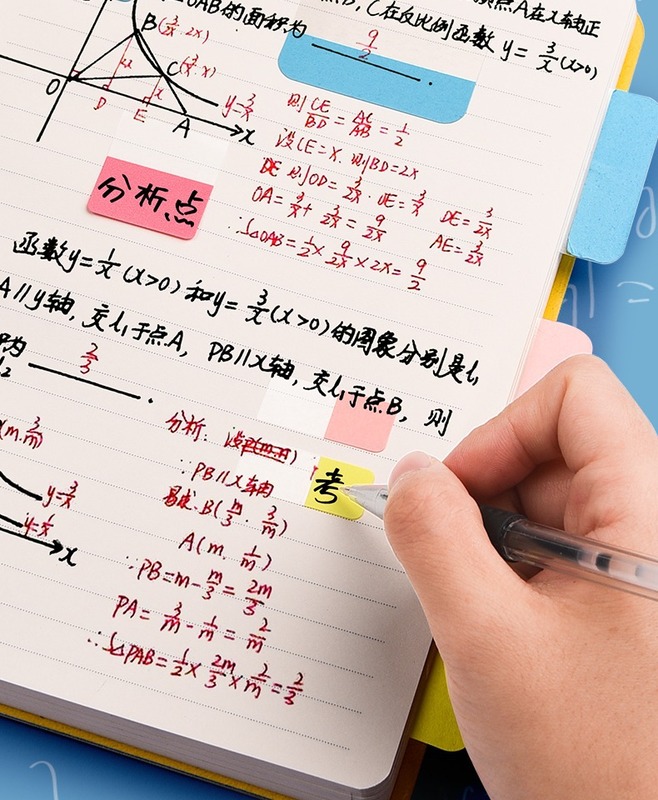 点A在x轴正
,C在反比例函数 y=3/x(x>0)
△OAB的面积为 9/2 .
B(3/2x·2x)
C(3/x·x)
2x
x
O
D
E
A
x
y=3/x
则CE/BD=AC/AB=1/2
设CE=x.则BD=2x
则OD=3/2x.OE=3/x DE=3/2x
OA=3/x+3/2x=9/2x AE=3/2x
∴S△OAB=1/2×9/2x×2x=9/2
分析点
函数y=1/x(x>0)和y=3/x(x>0)的图象分别是l₁
A∥y轴,交l₁于点A,PB∥x轴,交l₁于点B,则
为 2/3 .
(m.3/m)
y=3/x
y=1/x
x
分析:设P(m.n)
∵PB∥x轴
考
易求:B(m/3.3/m)
A(m.1/m)
∵PB=m-m/3=2m/3
PA=3/m-1/m=2/m
∴S△PAB=1/2×2m/3×2/m=2/3